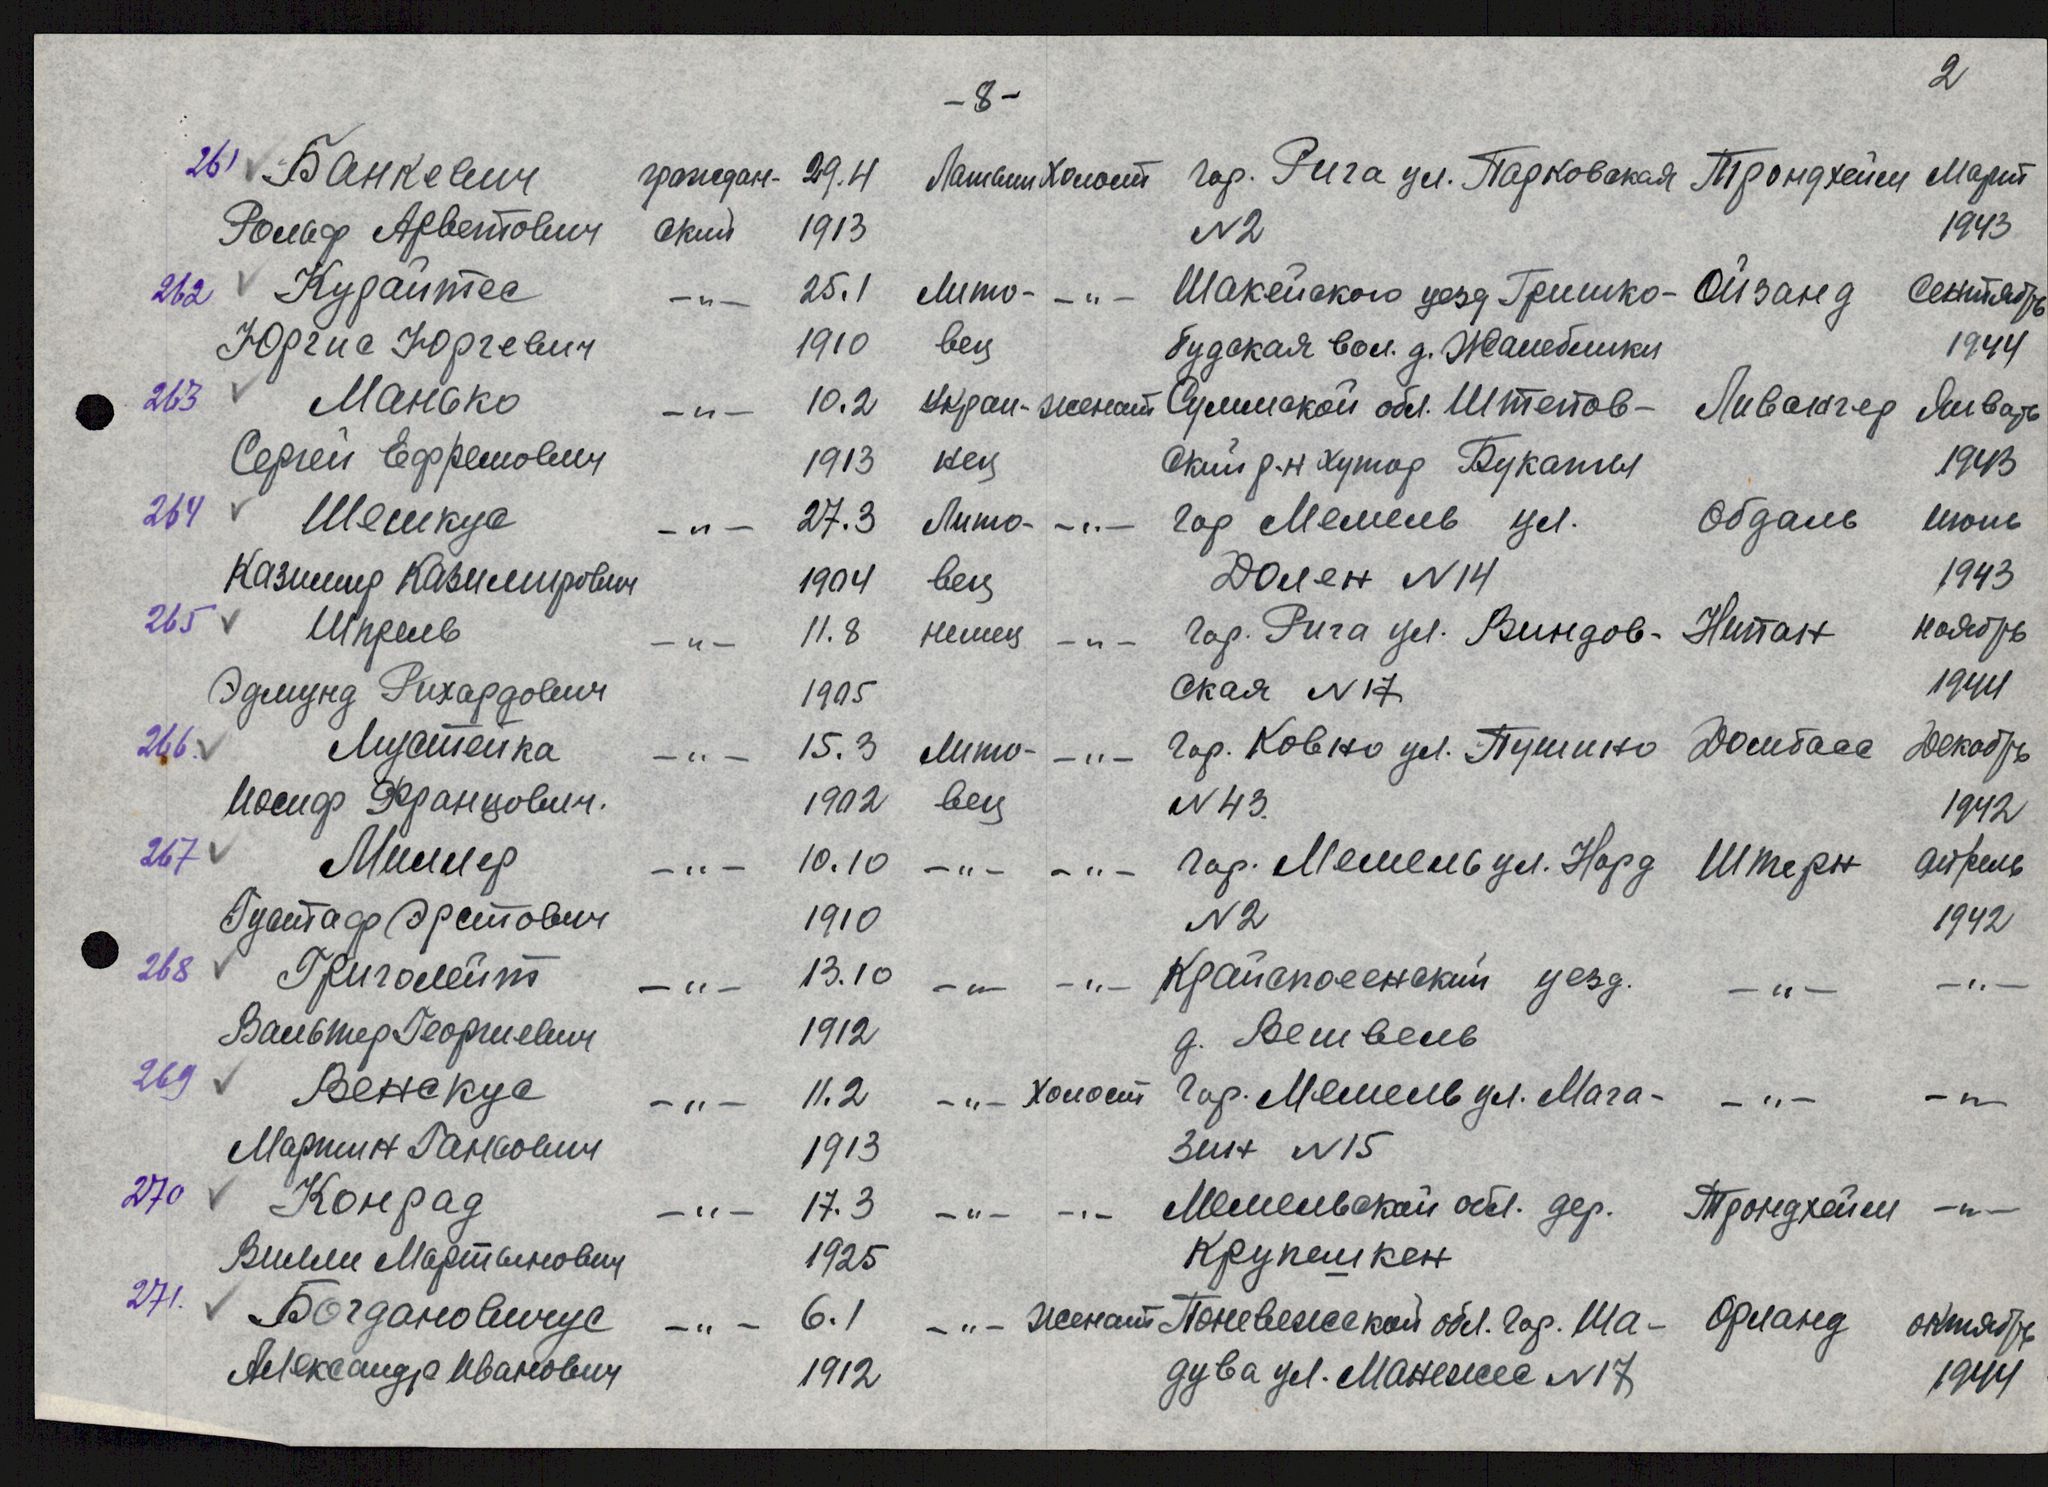 2
-8-
261 Банкевич граждан- 29.4 Латыш Холост гор. Рига ул. Парковская Трондхейм Март
Рольф Арветович ский 1913 N2 1943
262 Кудайтес -"- 25.1 Лито- -"- Шакейского уезд Гришко- Ойзанд Сентябрь
Юргис Юргевич 1910 вец будская вол. д. 1944
263 Манько -"- 10.2 Украи- женат Сумской обл. Штепов- Ливангер Январь
Сергей Ефремович 1913 нец ский р-н хутор Букаты 1943
264 Шемкус -"- 27.3 Лито- -"- гор Мемель ул. Обдаль июнь
Казимир Казимирович 1904 вец Долен N14 1943
265 Шпрель -"- 11.8 немец -"- гор. Рига ул. Виндов- Нипан ноябрь
Эдмунд Рихардович 1905 ская N17 1944
266. Мустейка -"- 15.3 Лито- -"- гор. Ковно ул. Пушино Домбасс Декабрь
Иосиф Францович. 1902 вец N43. 1942
267 Миллер -"- 10.10 -"- -"- гор. Мемель ул. Норд Штерн апрель
Густаф Эрстович 1910 N2 1942
268 Григолейт -"- 13.10 -"- -"- Крайспоегенский уезд. -"- -"-
Вальтер Георгиевич 1912 д. Вешвель
269 Венскус -"- 11.2 -"- Холост гор. Мемель ул. Мага- -"- -"-
Мартин Гансович 1913 зин N15
270 Конрад -"- 17.3 -"- -"- Мемельской обл. дер. Трондхейм -"-
Вилли Мартынович 1925 Крупешкен
271. Богдановичус -"- 6.1 -"- женат Поневежской обл. гор. Ша- Орланд октябрь
Александр Иванович 1912 дува ул. Манеже N17 1944